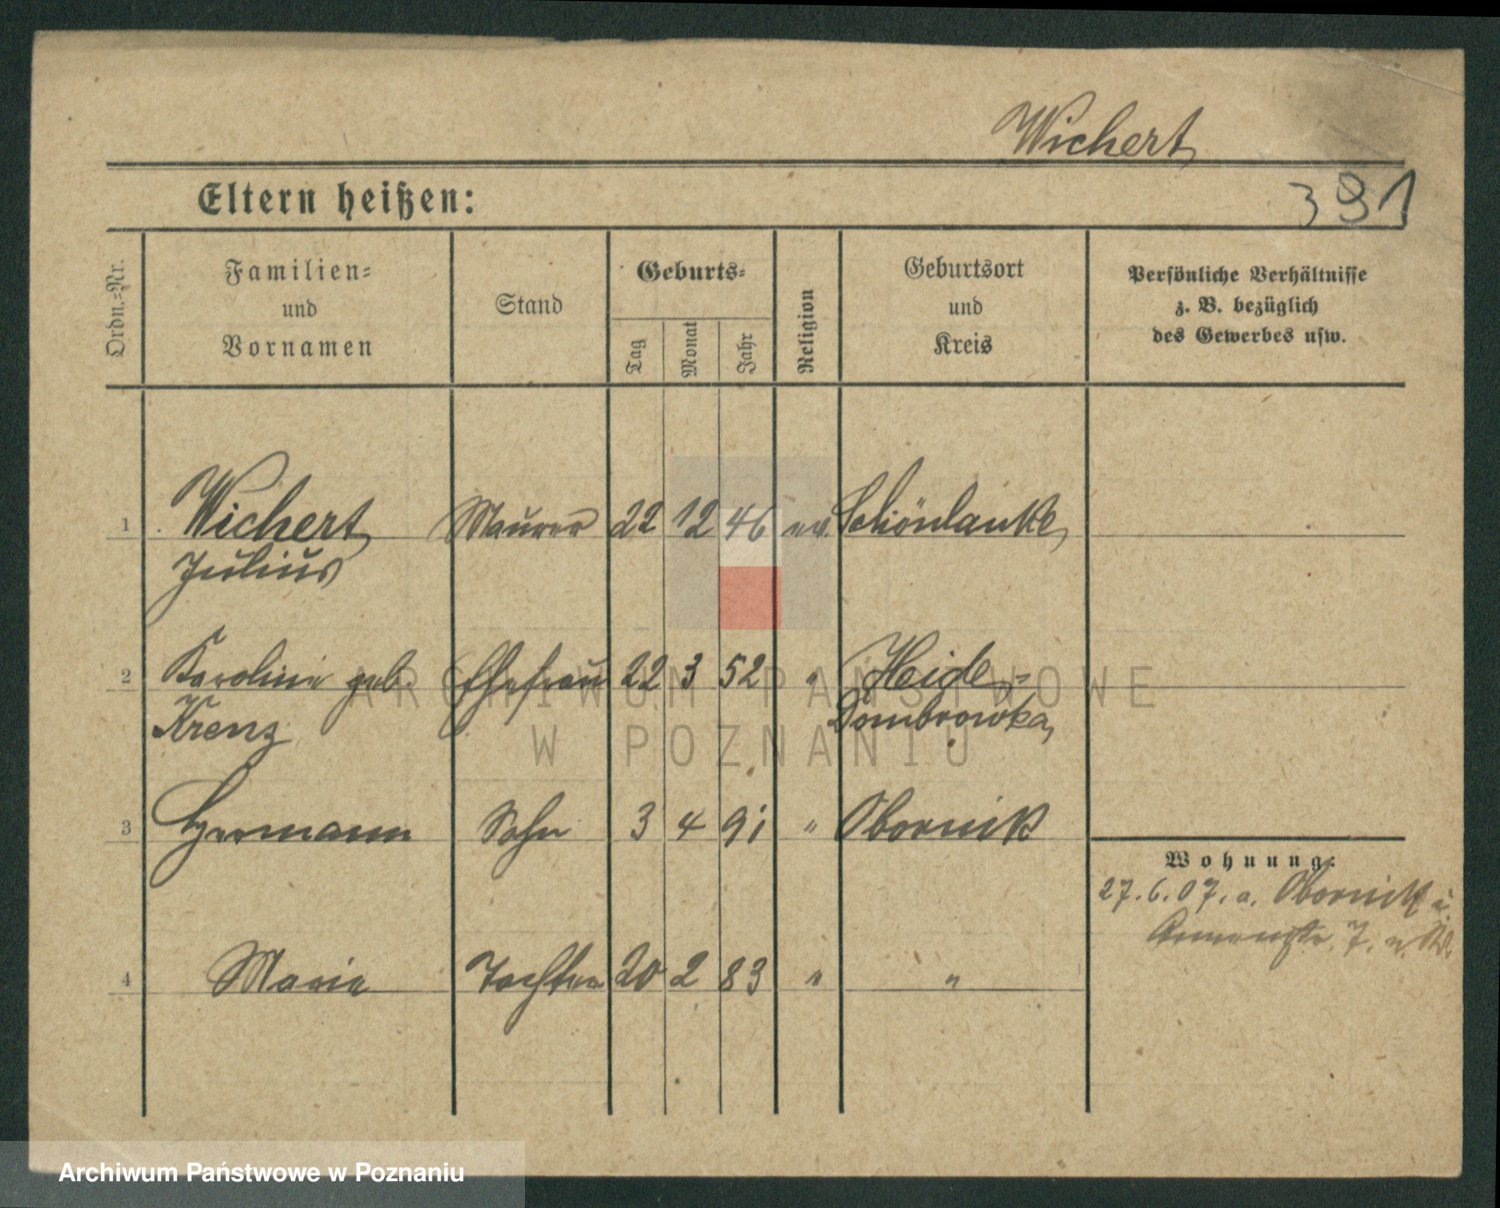 Wichert
391
Eltern heißen:
Ordn.-Nr.
Familien-
und
Vornamen
Stand
Geburts-
Tag
Monat
Jahr
Religion
Geburtsort
und
Kreis
Persönliche Verhältnisse
z. B. bezüglich
des Gewerbes usw.
1 Wichert Maurer 22 12 46 ev. Schönlanke
Julius
2 Karoline geb Ehefrau 22 3 52 " Heide-
Krenz Dombrowka
3 Hermann Sohn 3 4 91 " Obornik
Wohnung:
27.6.07. a. Obornik
4 Marie Tochter 20 2 83 " "
ARCHIWUM PAŃSTWOWE
W POZNANIU
Archiwum Państwowe w Poznaniu